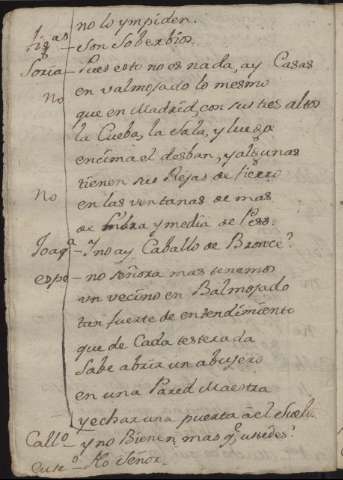 no lo ympiden.
figas – son soberbios
Soria – Pues esto no es nada, ay Casas
en valmojado lo mesmo
No que en Madrid, con sus tres altos
la Cueba, la Sala, y luego
encima el desban, y algunas
tienen sus Rejas de fierro
No en las ventanas de mas
de libra y media de Peso.
Joaqª – y no ay Caballo de Bronce?
espo – no señora mas tenemos
un vecino en Balmojado
tan fuerte de entendimiento
que de Cada testerada
Sabe abrir un abujero
en una Pared Maestra
y echar una puerta a el Suelo
Callº – y no Bienen mas qᵉ ustedes?
– No Señor